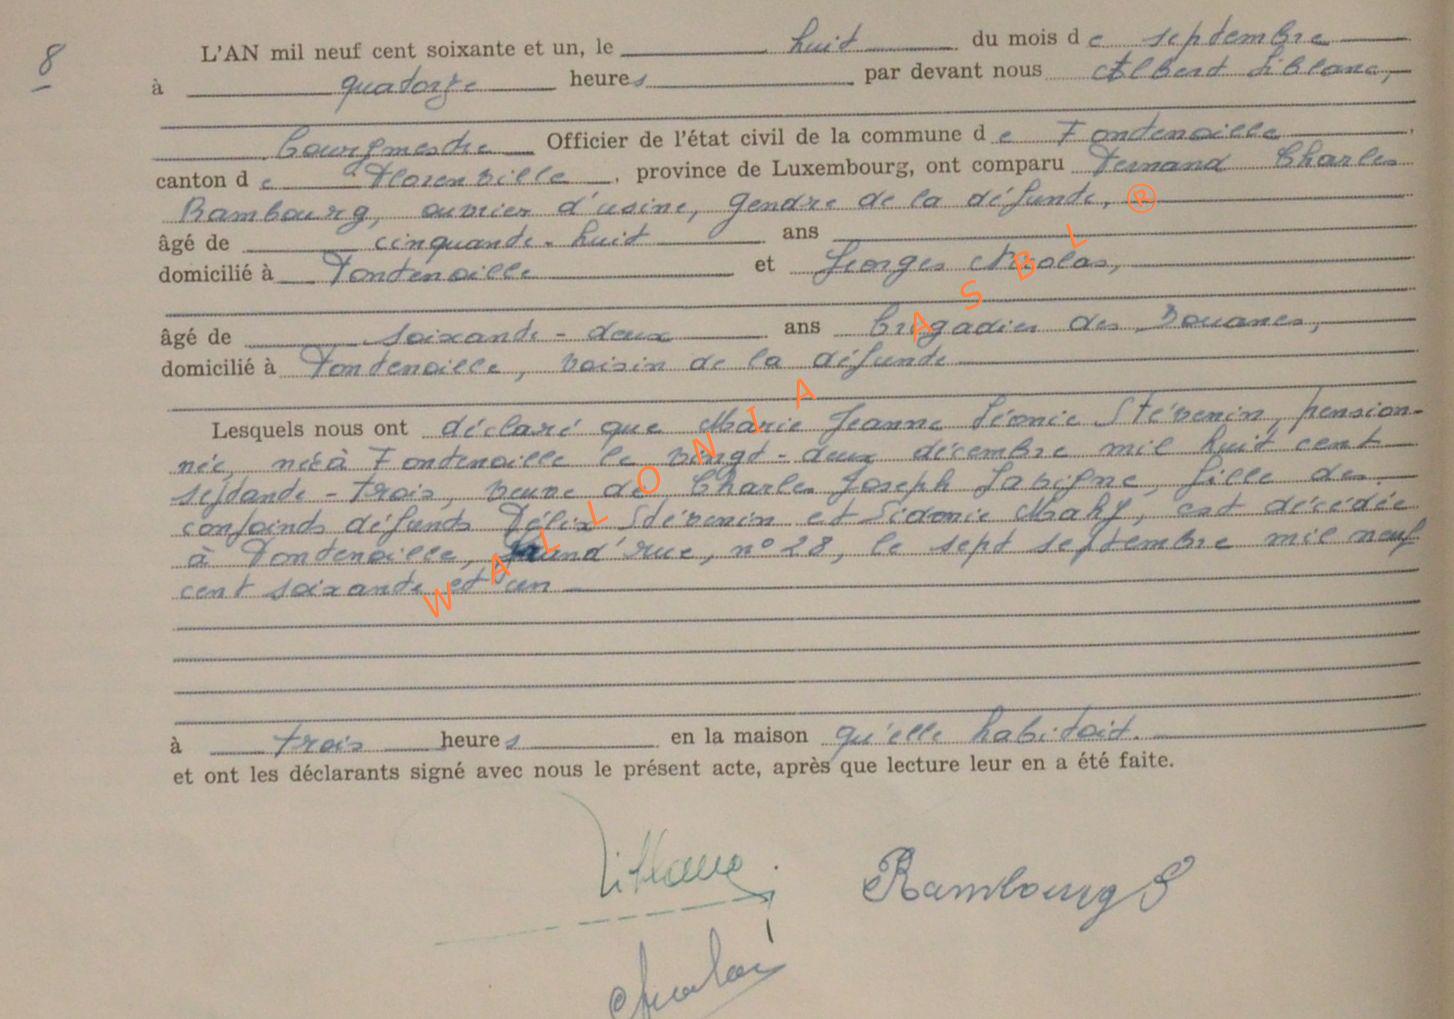 8
L'AN mil neuf cent soixante et un, le huit du mois de septembre
à quatorze heures par devant nous Albert Liblanc,
Bourgmestre Officier de l'état civil de la commune de Fontenoille
canton de Florenville, province de Luxembourg, ont comparu Fernand Charles
Rambourg, ouvrier d'usine, gendre de la défunte, ®
âgé de cinquante-huit ans
domicilié à Fontenoille et Georges Nicolas,
âgé de soixante-deux ans brigadier des Douanes,
domicilié à Fontenoille, voisin de la défunte
Lesquels nous ont déclaré que Marie Jeanne Léonie Stévenin, pension-
née, née à Fontenoille le vingt-deux décembre mil huit cent
septante-trois, veuve de Charles Joseph Lavigne, fille des
conjoints défunts Félix Stévenin et Sidonie Mahy, est décédée
à Fontenoille, grand'rue, n° 28, le sept septembre mil neuf
cent soixante et un
à trois heures en la maison qu'elle habitait.
et ont les déclarants signé avec nous le présent acte, après que lecture leur en a été faite.
WALLONIA ASBL
Rambourg